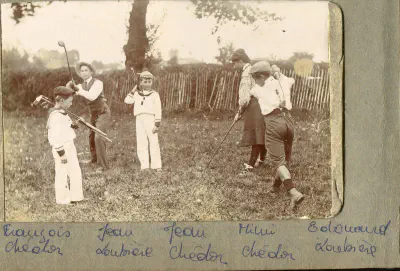 François Jean Jean Mimi Edouard
Chédor Loubière Chédor Chédor Loubière